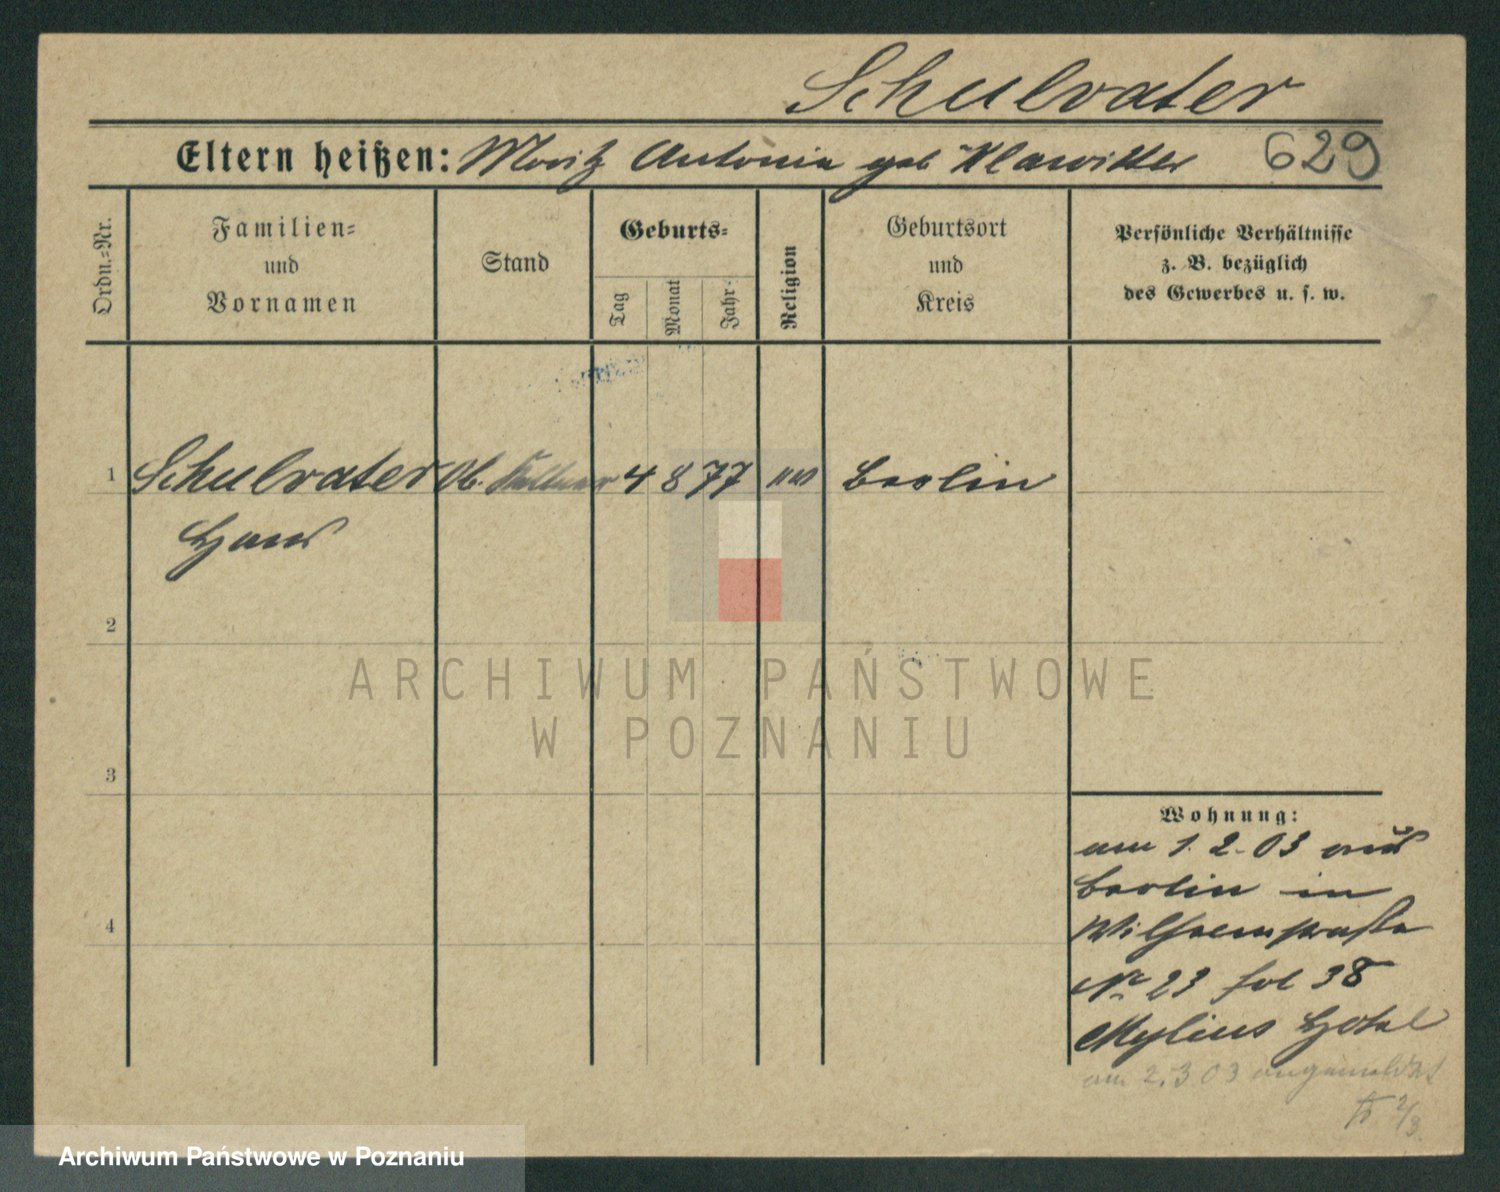 Schulvater
Eltern heißen: Moritz Antonie geb Klawitter 629
Ordn.=Nr.
Familien=
und
Vornamen
Stand
Geburts=
Tag
Monat
Jahr.
Religion
Geburtsort
und
Kreis
Persönliche Verhältnisse
z. B. bezüglich
des Gewerbes u. s. w.
1 Schulvater Ob. Kellner 4 8 77 Berlin
Hans
2
3
4
Wohnung:
am 1. 2. 03 aus
Berlin in
Wilhelmstraße
No 23 fol 38
Mylius Hotel
am 2. 3 03 angemeldet
2/3
ARCHIWUM PAŃSTWOWE
W POZNANIU
Archiwum Państwowe w Poznaniu